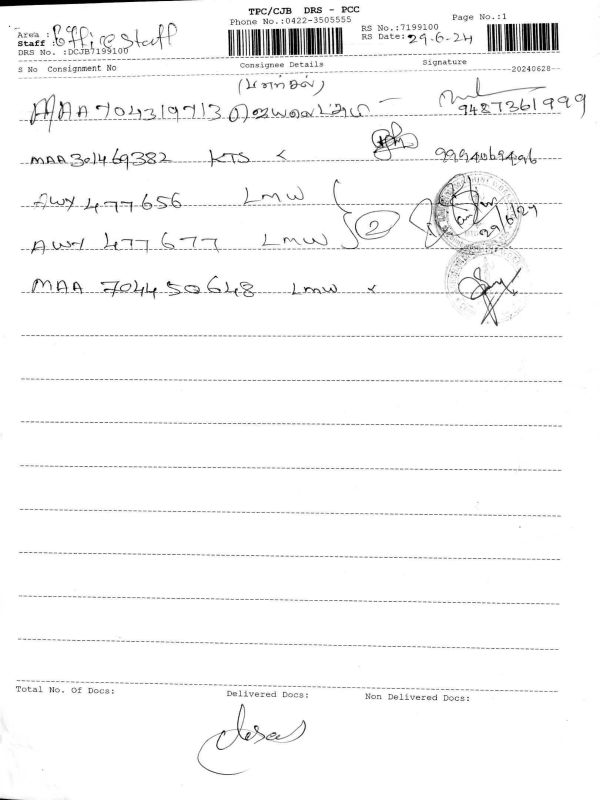 TPC/CJB DRS - PCC
Phone No.:0422-3505555
Page No.:1
Area :
Staff : Office Staff
DRS No. :DCJB7199100
RS No.:7199100
RS Date: 29-6-24
S No Consignment No Consignee Details Signature
20240628
MAA 704319713 9487361999
MAA 301469382 KTS 9994069496
AWX 477656 LMW
2
29/6/24
AWX 477677 LMW
MAA 704450648 LMW
Total No. Of Docs: Delivered Docs: Non Delivered Docs: